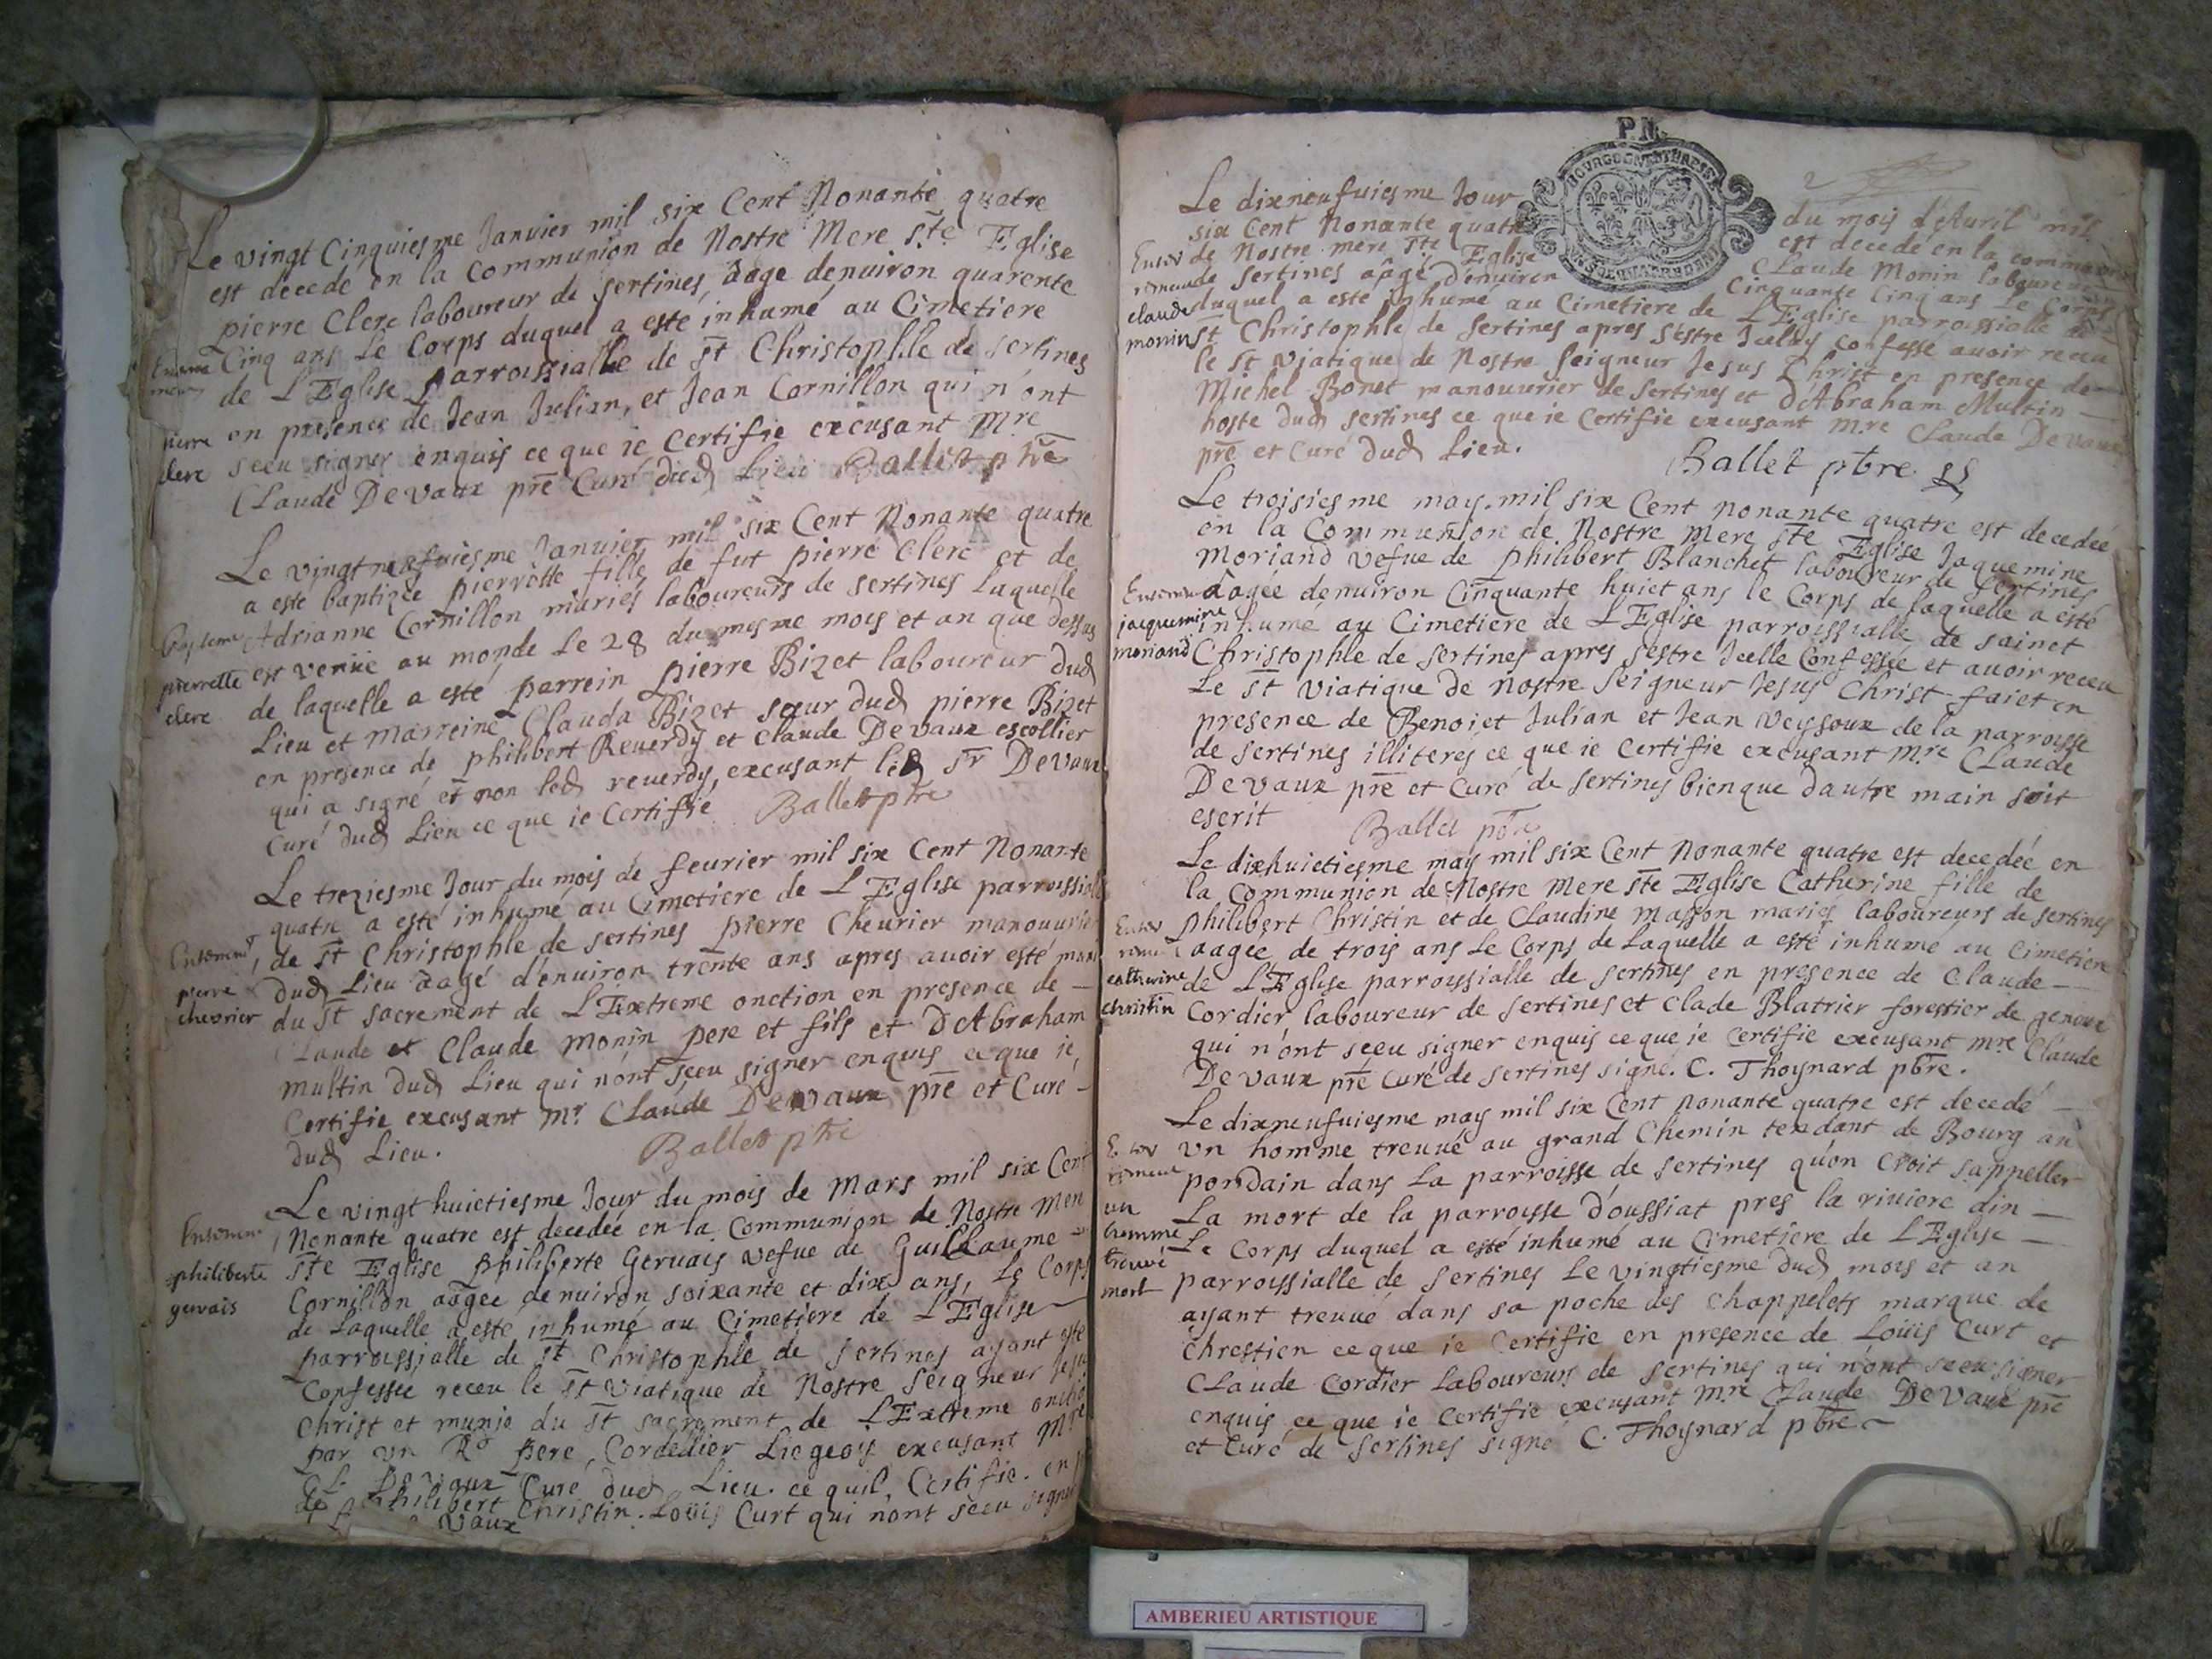 Le vingt Cinquiesme Janvier mil six Cent Nonante quatre
est decedé en la Communion de Nostre Mere Ste Eglise
pierre Clerc laboureur de sertines, aage denuiron quarente
Cinq ans Le Corps duquel a este inhumé au Cimetiere
de L'Eglise parroissialle de st Christophle de sertines
en presence de Jean Julian, et Jean Cornillon qui n'ont
sceu signer enquis ce que ie certifie excusant Mre
Claude De vaux pre Curé dud Lieu Ballet pbre
pierre
clerc
Le vingt neufuiesme Janvier mil six Cent Nonante quatre
a esté baptizée pierrotte fille de fut pierre Clerc et de
Adrianne Cornillon mariés laboureurs de sertines Laquelle
est venue au monde Le 28 du mesme mois et an que dessus
de laquelle a esté parrein pierre Bizet laboureur dud
Lieu et Marreine Clauda Bizet sœur dud pierre Bizet
en presence de philibert Reuerdy et Claude De vaux escollier
qui a signé et non led reuerdy, excusant led sr De vaux
Curé dud Lieu ce que ie Certifie Ballet pbre
pierrette
clerc
Le treziesme Jour du mois de feurier mil six Cent Nonante
quatre a esté inhumé au Cimetiere de L'Eglise parroissialle
de st Christophle de sertines pierre Cheurier manouurier
dud Lieu aagé d'enuiron trente ans apres auoir esté muni
du st sacrement de L'Extreme onction en presence de
Claude et Claude Monin pere et fils et D'Abraham
multin dud Lieu qui n'ont sceu signer enquis ce que ie
Certifie excusant Mr Claude De vaux pre et Curé
dud Lieu. Ballet pbre
pierre
chevrier
Le vingt huictiesme Jour du mois de Mars mil six Cent
Nonante quatre est decedée en la Communion de Nostre Mere
Ste Eglise philiberte Gervais vefue de Guillaume
Cornillon aagée denuiron soixante et dix ans, Le Corps
de Laquelle a este inhumé au Cimetiere de L'Eglise
parroissialle de st Christophle de sertines ayant esté
Confessée receu le st viatique de Nostre Seigneur Jesus
Christ et munie du st sacrement de L'Extreme onction
par un Rd Pere Cordellier Liegeois excusant Mre
Cl. De vaux Curé dud Lieu. ce quil Certifie. en
de philibert Christin. Loüis Curt qui n'ont sceu signer
vaux
philiberte
gervais
P.N.
Le dixneufuiesme Jour du mois d'Auril mil
six Cent Nonante quatre est decedé en la commun
de Nostre mere ste Eglise Claude Monin laboureur
de sertines aâgé d'enuiron Cinquante Cinq ans Le Corps
duquel a este inhumé au Cimetiere de L'Eglise parroissialle de
St Christophle de sertines apres s'estre Iceluy Confesse auoir receu
le st viatique de Nostre Seigneur Jesus Christ en presence de
Michel Bonet manouurier de sertines et d'Abraham Multin
hoste dud sertines ce que ie Certifie excusant M.re Claude De vaux
pre et Curé dud Lieu.
Ballet pbre
claude
monin
Le troisiesme may mil six Cent nonante quatre est decedée
en la Communion de Nostre Mere ste Eglise Jaquemine
Moriand vefue de philibert Blanchet laboureur de sertines
aagée denuiron Cinquante huict ans le Corps de laquelle a esté
inhumé au Cimetiere de L'Eglise parroissialle de sainct
Christophle de sertines apres s'estre Icelle Confessée et auoir receu
Le st viatique de nostre Seigneur Jesus Christ faict en
presence de Benoict Julian et Jean veissoux de la parroisse
de sertines illiterés ce que ie Certifie excusant Mre Claude
De vaux pre et Curé de sertines bienque dautre main soit
escrit Ballet pbre
jaquemine
moriand
Le dixhuictiesme may mil six Cent Nonante quatre est decedée en
la Communion de Nostre Mere ste Eglise Catherine fille de
philibert Christin et de Claudine Masson mariés laboureurs de sertines
aagée de trois ans Le Corps de Laquelle a esté inhumé au Cimetiere
de L'Eglise parroissialle de sertines en presence de Claude
Cordier laboureur de sertines et Clade Blatrier forestier de genoux
qui n'ont sceu signer enquis ce que ie certifie excusant Mre Claude
De vaux pre Curé de sertines signé. C. Thoynard pbre.
catherine
christin
Le dixneufuiesme may mil six Cent nonante quatre est decedé
un homme treuué au grand Chemin tendant de Bourg au
pondain dans La parroisse de sertines qu'on croit s'appeller
La mort de la parroisse d'oussiat pres la riuiere d'in
Le Corps duquel a esté inhumé au Cimetiere de L'Eglise
parroissialle de sertines Le vingtiesme dud mois et an
ayant treuué dans sa poche des Chappelets marque de
Chrestien ce que ie Certifie en presence de Loüis Curt et
Claude Cordier Laboureurs de sertines qui n'ont sceu signer
enquis ce que ie certifie excusant Mre Claude De vaux pre
et Curé de sertines signé C. Thoynard pbre
un
homme
trouvé
mort
AMBERIEU ARTISTIQUE